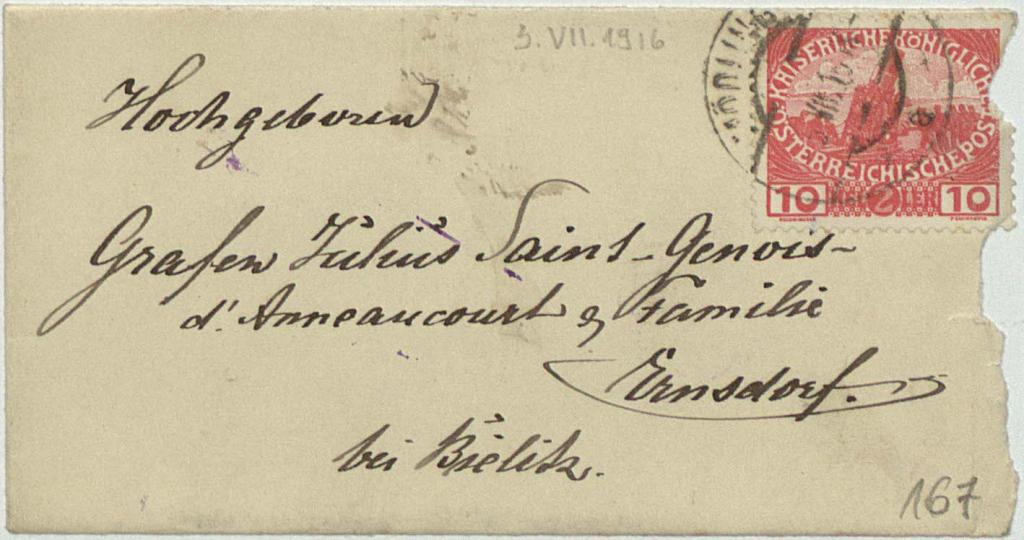 3. VII. 1916
KAISERLICHE KÖNIGLICHE
ÖSTERREICHISCHE POST
10 HELLER 10
Hochgeboren
Grafen Julius Saint-Genois-
d'Anneaucourt & Familie
Ernsdorf.
bei Bielitz.
167